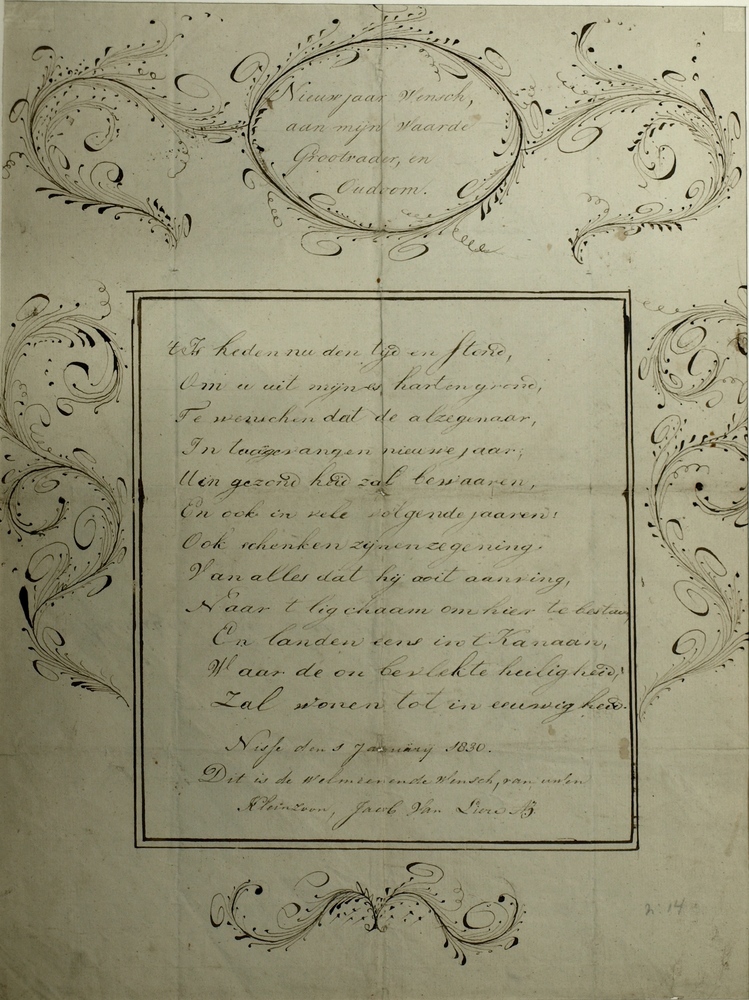 Nieuwjaar Wensch,
aan mijn Waarde
Grootvader, en
Oudoom.
't Is heden nu den tijd en stond,
Om u uit mijnes harten grond,
Te wenschen dat de alzegenaar,
In 't aangevangen nieuwe jaar,
U in gezond heid zal bewaaren,
En ook in vele volgende jaaren:
Ook schenken zijnen zegening.
Van alles dat hij ooit aanving,
Naar t ligchaam om hier te bestaan,
En landen eens in t Kanaan,
Waar de on bevlekte heiligheid,
Zal wonen tot in eeuwigheid.
Nisse den 1 January 1830.
Dit is de welmeenende Wensch, van uwen
Kleinzoon, Jacob Van
N: 14